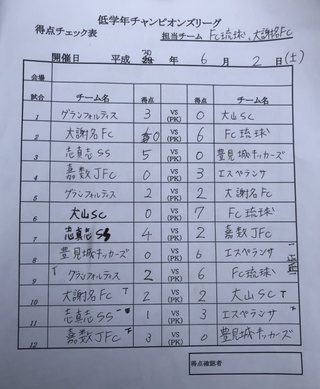 低学年チャンピオンズリーグ
得点チェック表 担当チーム FC琉球、大謝名FC
開催日 平成 30 年 6 月 2 日(土)
会場
試合 チーム名 得点 VS (PK) 得点 チーム名
1 グランフォルティス 3 VS (PK) 0 大山SC
2 大謝名FC 0 VS (PK) 6 FC琉球
3 志真志SS 5 VS (PK) 0 豊見城キッカーズ
4 嘉数JFC 0 VS (PK) 3 エスペランサ
5 グランフォルティス 2 VS (PK) 2 大謝名FC
6 大山SC 0 VS (PK) 7 FC琉球
7 志真志SS 4 VS (PK) 2 嘉数JFC
8 豊見城キッカーズ 0 VS (PK) 6 エスペランサ
9 グランフォルティス 2 VS (PK) 6 FC琉球
10 大謝名FC 2 VS (PK) 2 大山SC
11 志真志SS 1 VS (PK) 3 エスペランサ
12 嘉数JFC 3 VS (PK) 0 豊見城キッカーズ
得点確認者